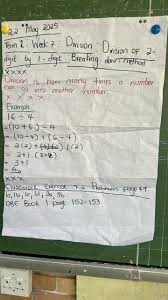 22 May 2025
Term 2: Week 7: Division: Division of 2-
digit by 1-digit: Breaking down method
x x x x
Division is how many times a number
can go into another number.
Example:
16 ÷ 4
= (10 + 6) ÷ 4
= (10 ÷ 4) + (6 ÷ 4)
= 2 (2) + 1 (2)
= 2 + 1 (2 + 2)
= 3 + 1
= 4
x x x
Classwork Exercise 7.2 Platinum page 67
1a, 1b, 1c, 1d, 3c, 3h
DBE Book 1 page 152-153